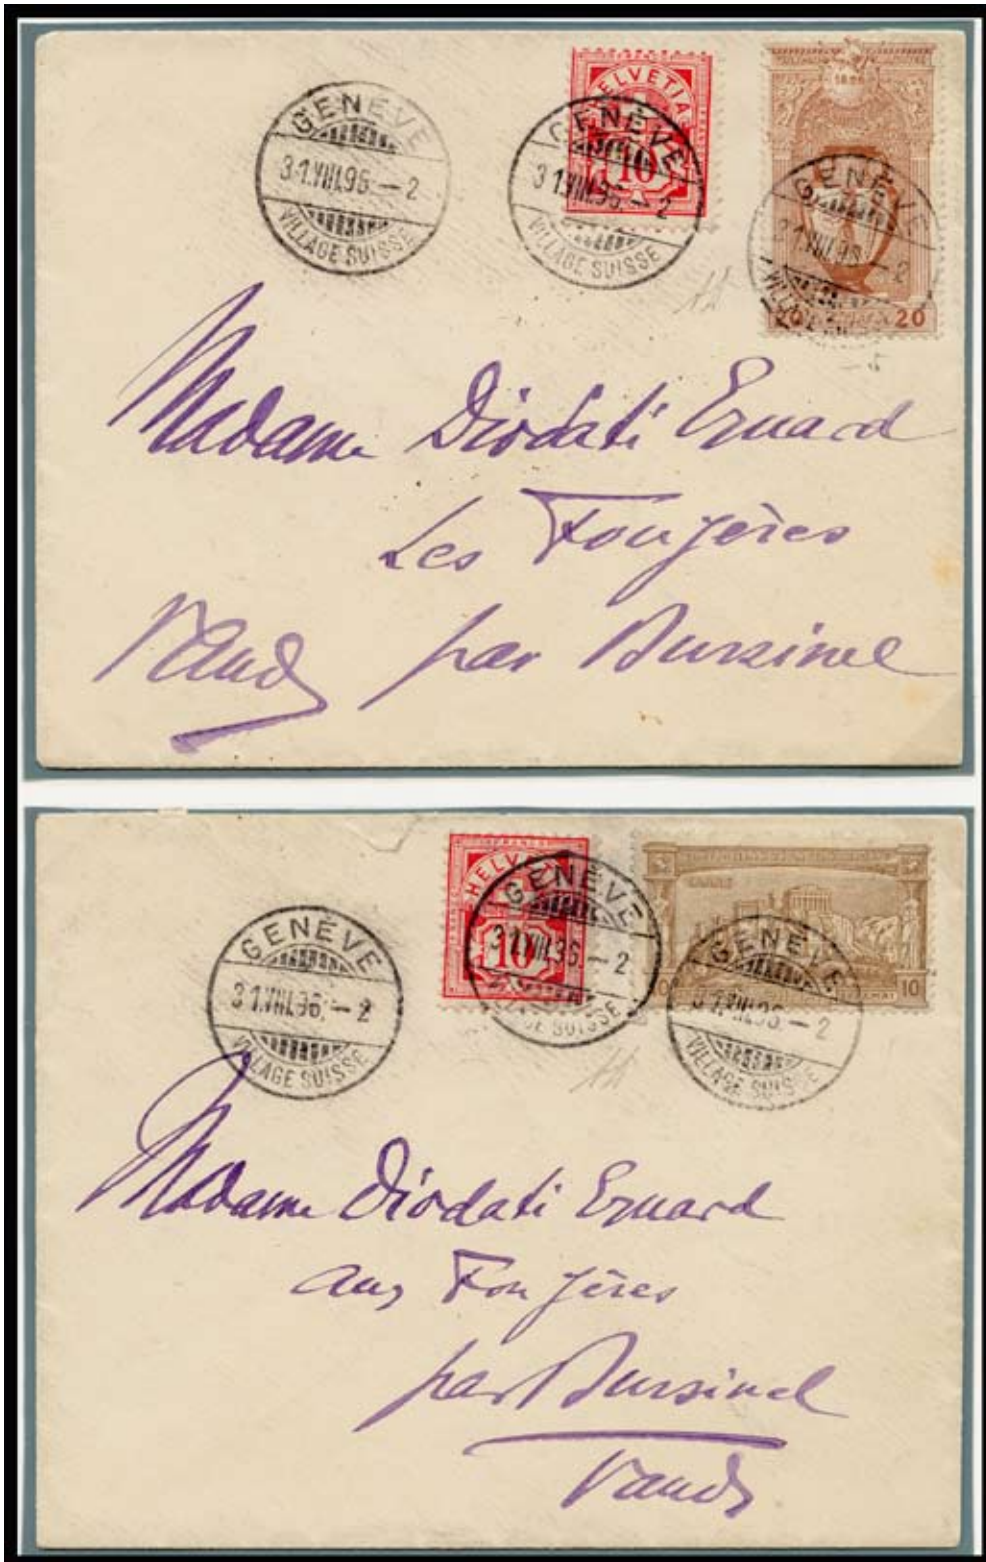 GENÈVE
31.VIII.96.–2
VILLAGE SUISSE
HELVETIA
10
GENÈVE
31.VIII.96.–2
VILLAGE SUISSE
1896
GENÈVE
31.VIII.96.–2
VILLAGE
20
Madame Diodati Eynard
Les Fougères
par Bursinel
Vaud
HELVE
10
GENÈVE
31.VIII.96.–2
SUISSE
10
GENÈVE
31.VIII.96.–2
VILLAGE SUISSE
GENÈVE
31.VIII.96.–2
VILLAGE SUISSE
Madame Diodati Eynard
aux Fougères
par Bursinel
Vaud